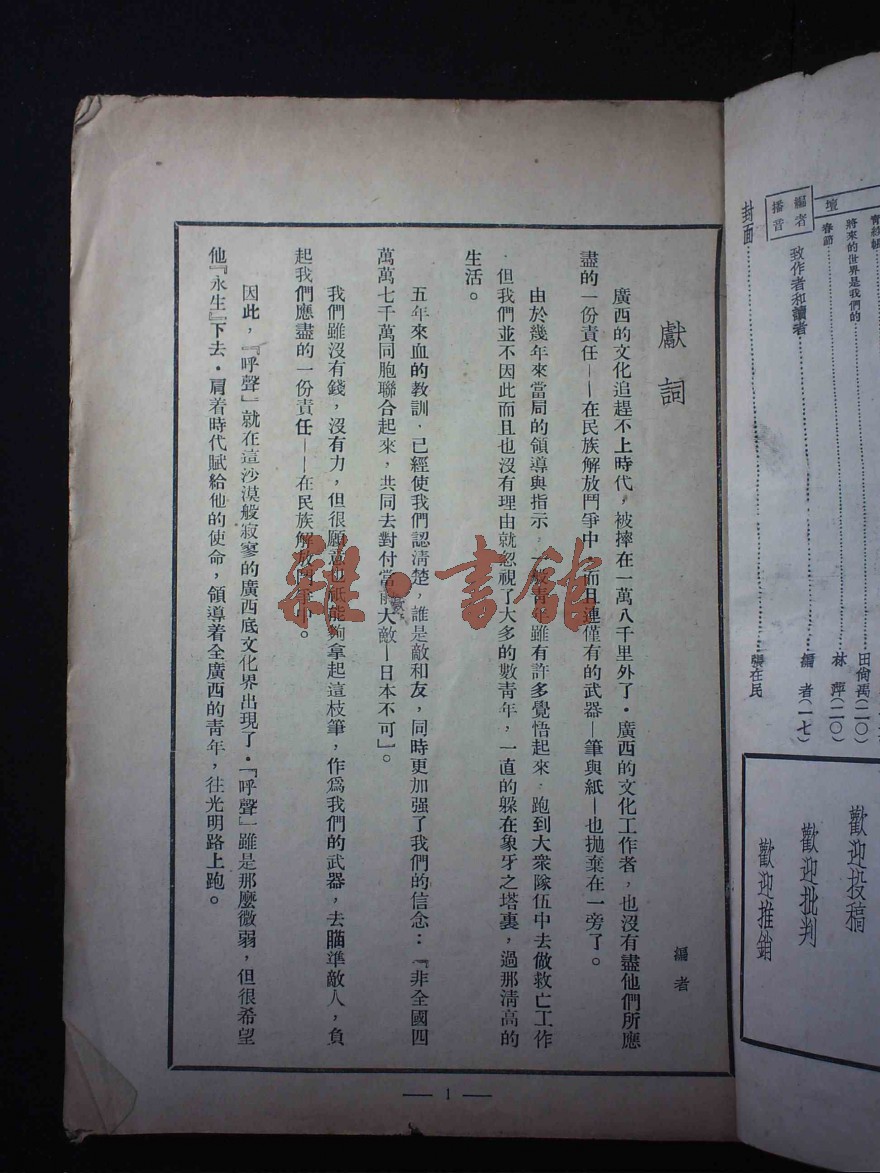 獻詞
編者
廣西的文化追趕不上時代，被摔在一萬八千里外了．廣西的文化工作者，也沒有盡他們所應
盡的一份責任——在民族解放鬥爭中，而且連僅有的武器—筆與紙—也拋棄在一旁了。
由於幾年來當局的領導與指示，一般青年雖有許多覺悟起來．跑到大衆隊伍中去做救亡工作
．但我們並不因此而且也沒有理由就忽視了大多的數青年，一直的躲在象牙之塔裏，過那清高的
生活。
五年來血的教訓．已經使我們認清楚，誰是敵和友，同時更加强了我們的信念：『非全國四
萬萬七千萬同胞聯合起來，共同去對付當前大敵—日本不可』。
我們雖沒有錢，沒有力，但很願意也祇能夠拿起這枝筆，作爲我們的武器，去瞄準敵人，負
起我們應盡的一份責任——在民族解放鬥爭中。
因此，『呼聲』就在這沙漠般寂寥的廣西底文化界出現了．『呼聲』雖是那麼微弱，但很希望
他『永生』下去．肩着時代賦給他的使命，領導着全廣西的青年，往光明路上跑。
— 1 —
雜·書館
將來的世界是我們的……田倘禹(二〇)
春節……林萍(二〇)
壇
編者播音
致作者和讀者……編者(一七)
封面……在民
歡迎投稿
歡迎批判
歡迎推銷